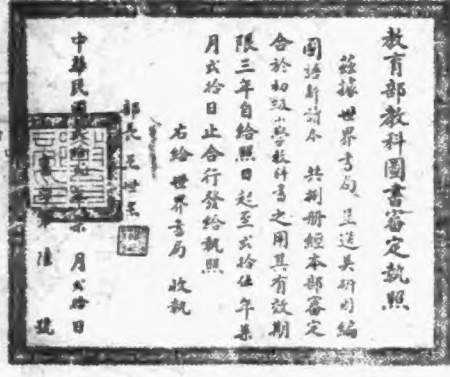 教育部教科圖書審定執照
茲據世界書局呈送吳研因編
國語新讀本共捌册經本部審定
合於初級小學教科書之用其有效期
限三年自給照日起至貳拾伍年柒
月貳拾日止合行發給執照
右給世界書局收執
部長王世杰
中華民國貳拾貳年柒月貳拾日
字第陸號